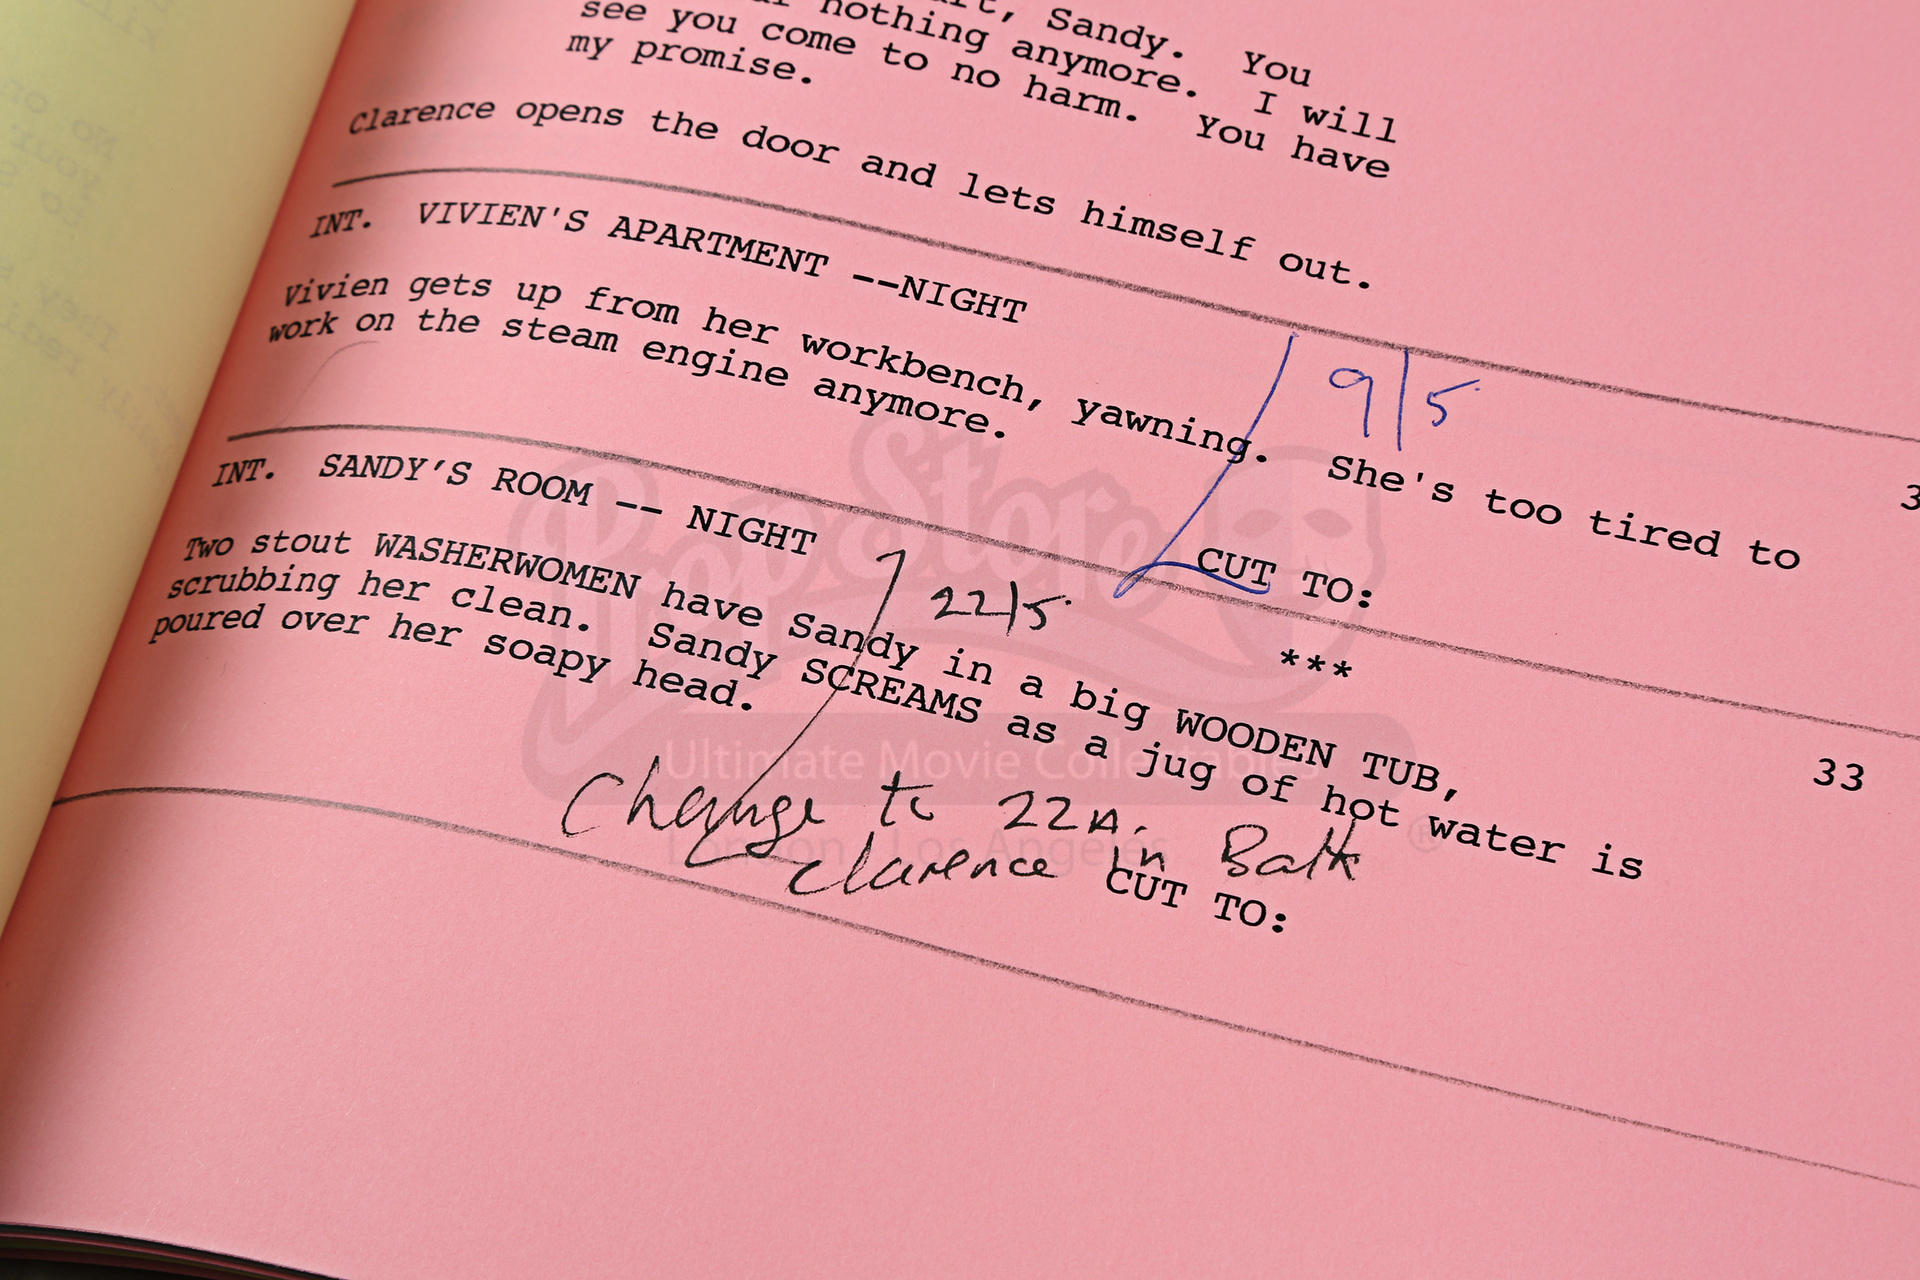 Sandy. You
nothing anymore. I will
see you come to no harm. You have
my promise.
Clarence opens the door and lets himself out.
INT. VIVIEN'S APARTMENT --NIGHT
Vivien gets up from her workbench, yawning. She's too tired to
work on the steam engine anymore.
9/5
3
CUT TO:
INT. SANDY'S ROOM -- NIGHT
22/5
***
33
Two stout WASHERWOMEN have Sandy in a big WOODEN TUB,
scrubbing her clean. Sandy SCREAMS as a jug of hot water is
poured over her soapy head.
Change to 22A. Clarence in Bath
CUT TO:
Prop Store
Ultimate Movie Collectables
London Los Angeles
®